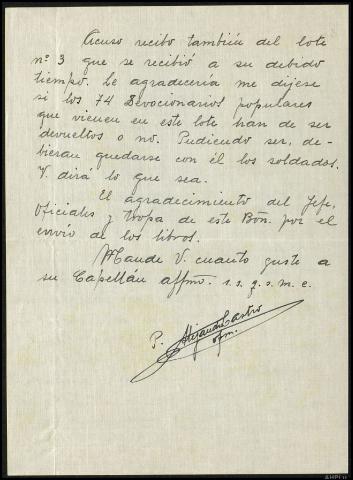 Acuso recibo también del lote
nº 3 que se recibió a su debido
tiempo. Le agradecería me dijese
si los 74 Devocionarios populares
que vienen en este lote han de ser
devueltos o no. Pudiendo ser, de-
bieran quedarse con él los soldados.
V. dirá lo que sea.
El agradecimiento del Jefe,
Oficiales y tropa de este Bón. por el
envío de los libros.
Mande V. cuanto guste a
su Capellán affmo. s.s.q.s.m.e.
P. Alejandro Castro
ofm.